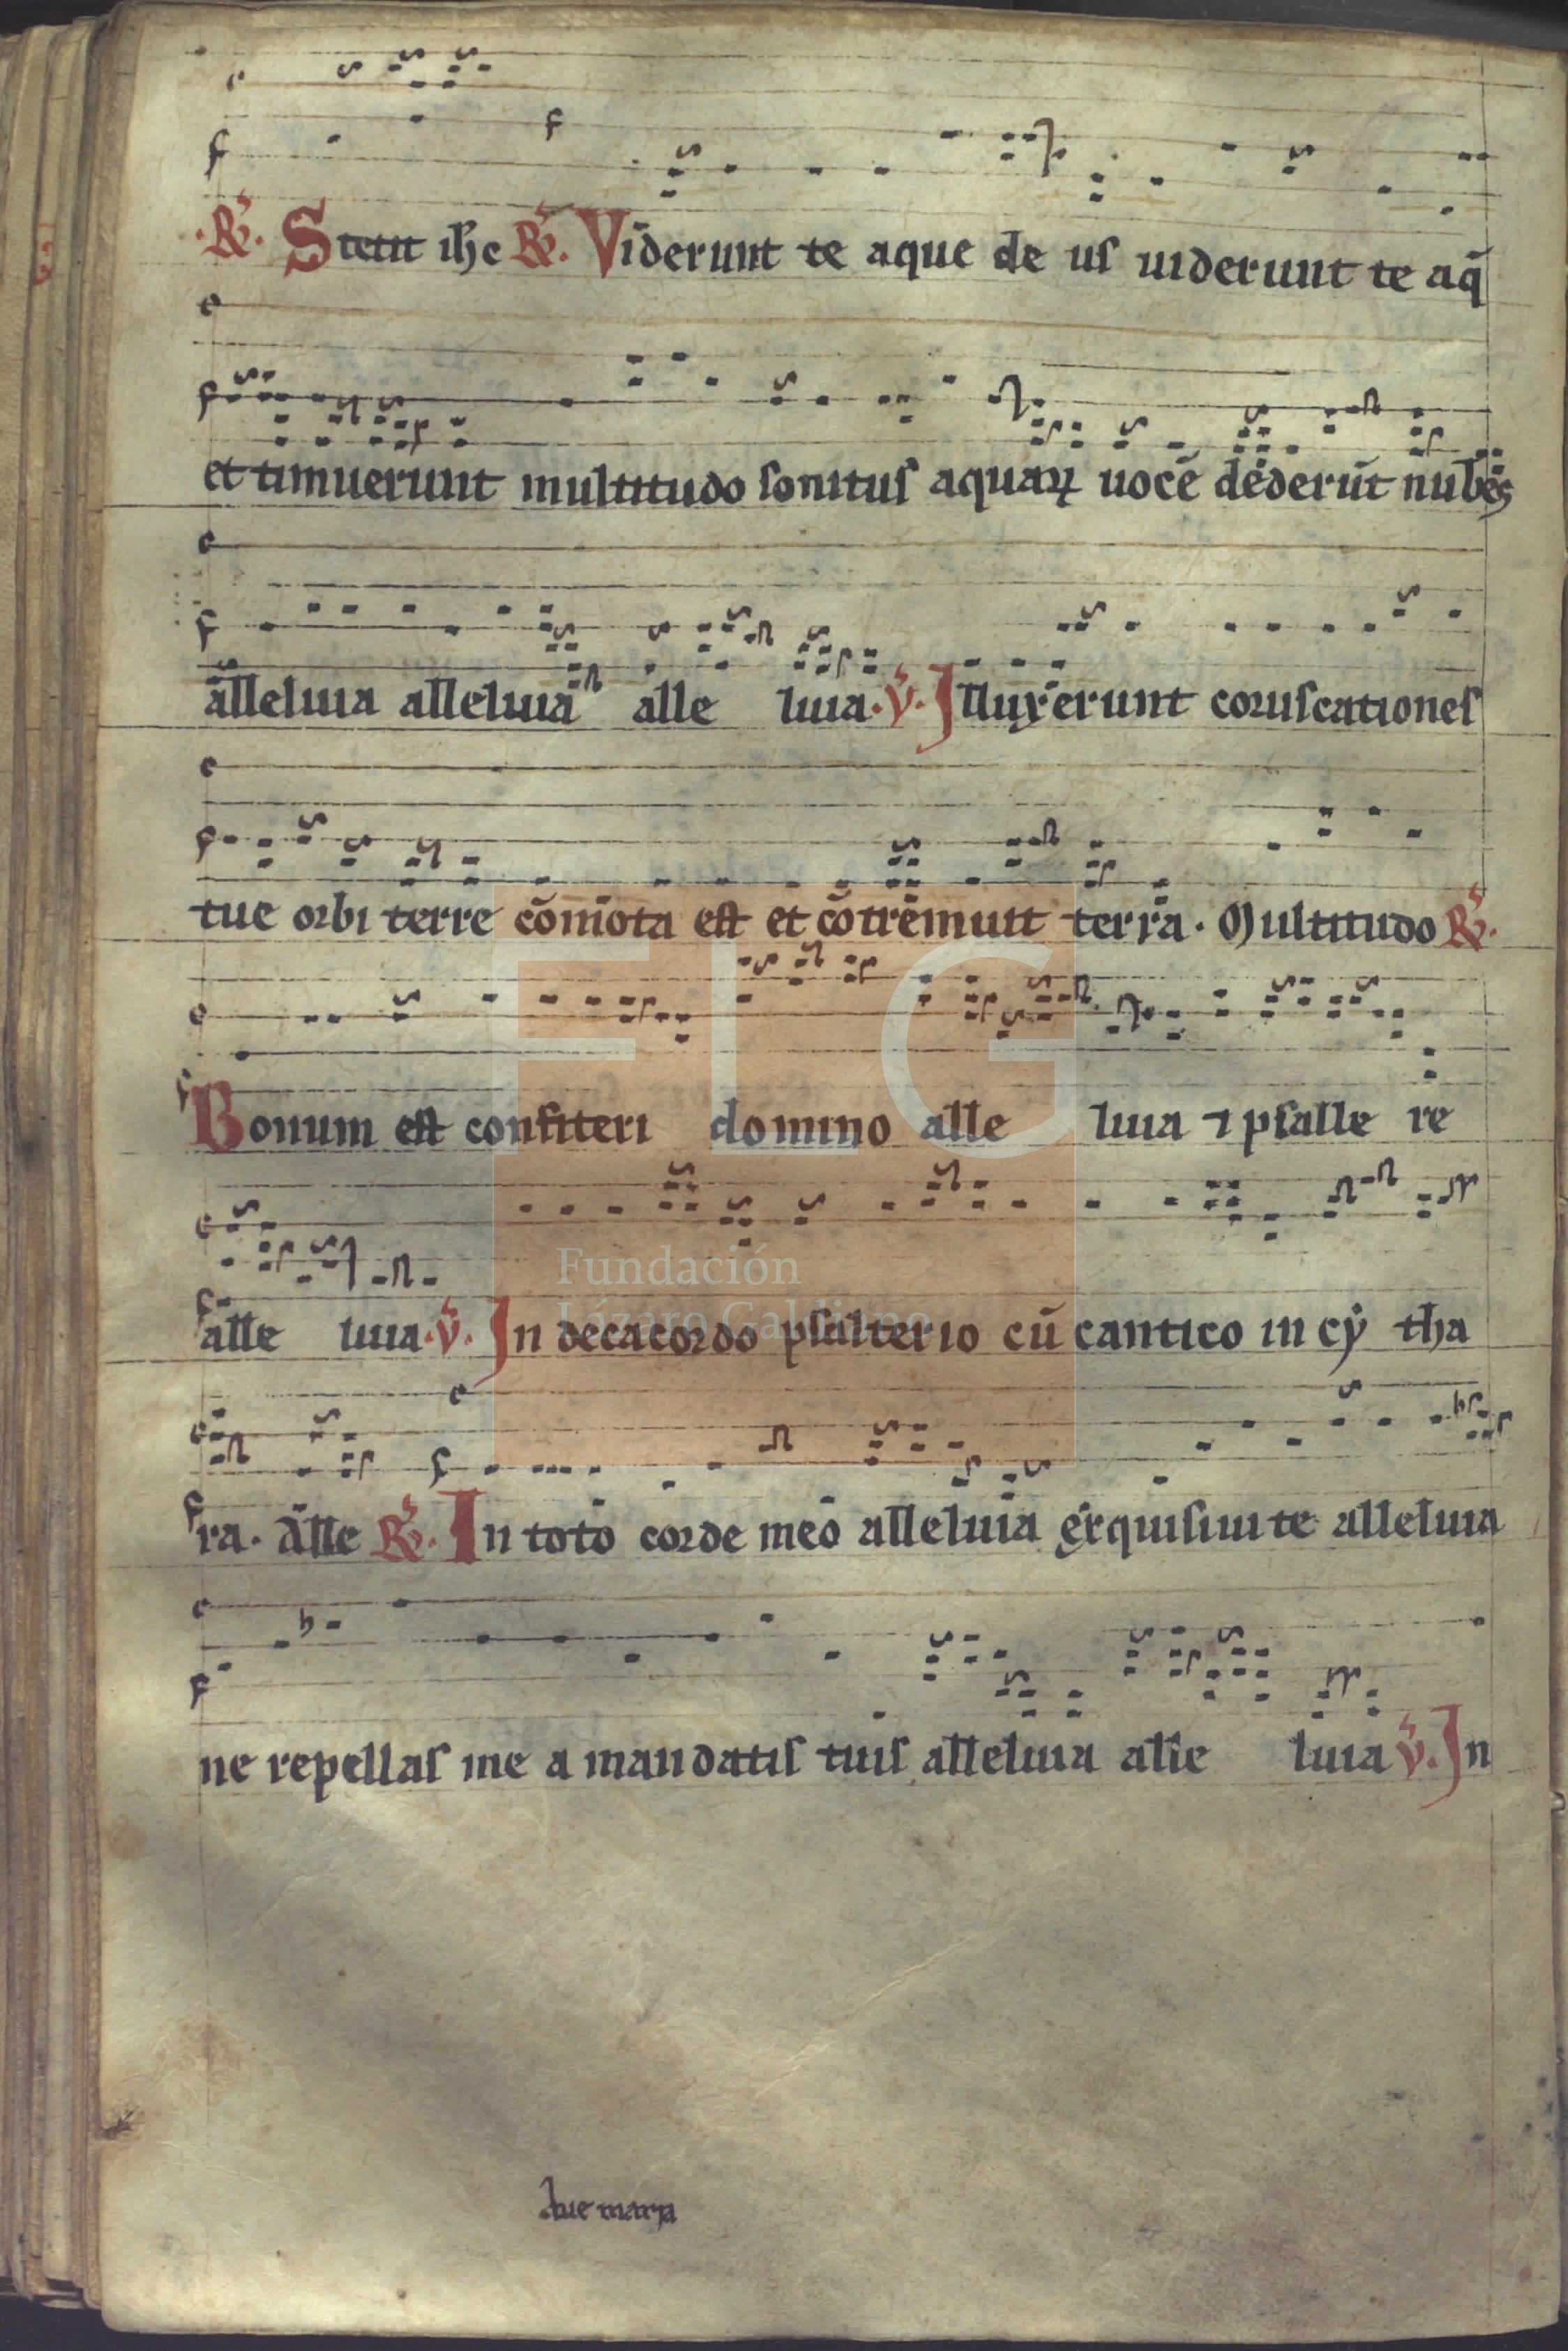 .℟. Stetit ihc ℟. Viderunt te aque de us uiderunt te aq̄
et timuerunt multitudo sonitus aquaꝝ uocē dederūt nubes
alleluia alleluia alle luia. ℣. Illuxerunt coruscationes
tue orbi terre cōmota est et cōtremuit terra. Multitudo ℟.
Bonum est confiteri domino alle luia ⁊ psalle re
alle luia. ℣. In decacordo psalterio cū cantico in cẏ tha
ra. Alle ℟. In toto corde meo alleluia exquisiui te alleluia
ne repellas me a mandatis tuis alleluia alle luia ℣. In
Aue maria
FLG
Fundación
Lázaro Galdiano